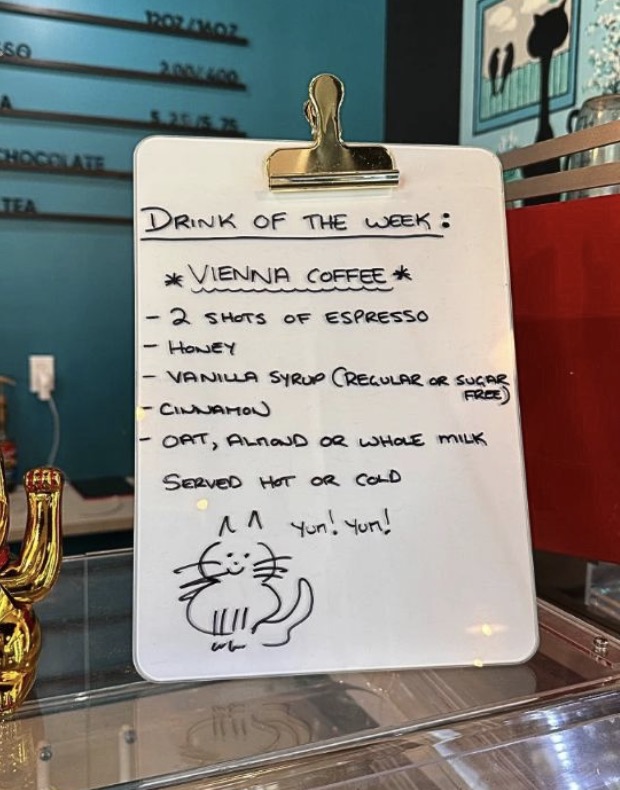 12OZ/16OZ
2.00/4.00
CHOCOLATE
TEA
DRINK OF THE WEEK:
* VIENNA COFFEE *
- 2 SHOTS OF ESPRESSO
- HONEY
- VANILLA SYRUP (REGULAR OR SUGAR
FREE)
- CINNAMON
- OAT, ALMOND OR WHOLE MILK
SERVED HOT OR COLD
YUM! YUM!